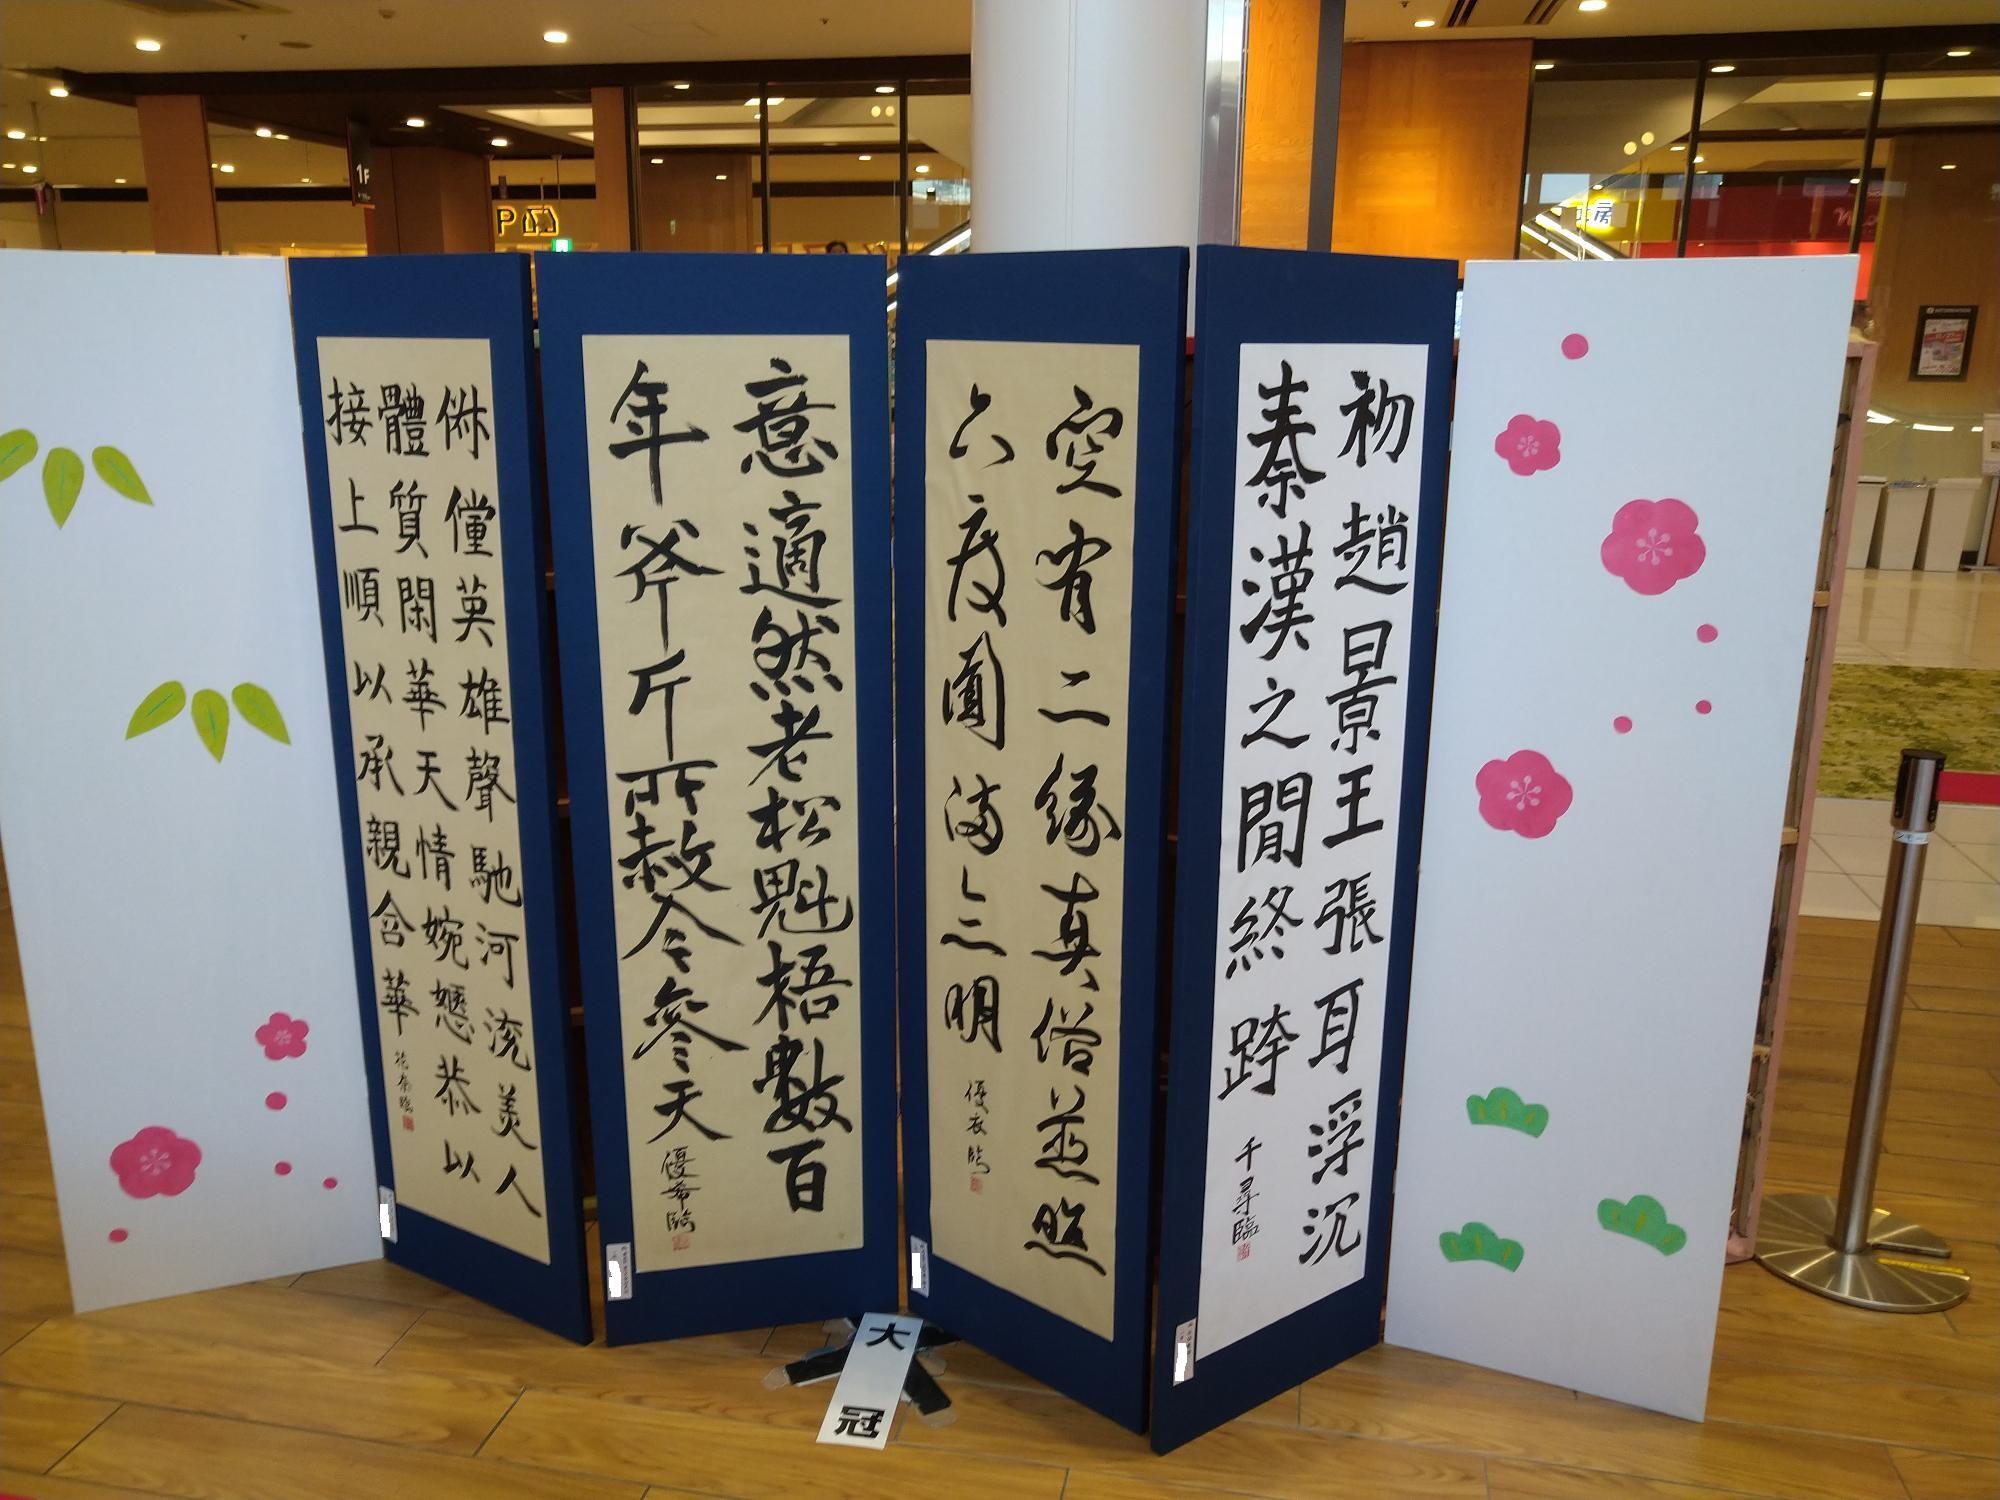 初趙景王張耳浮沉
秦漢之間終跨
千尋臨
空有二緣真俗並照
六度圓滿三明
優衣臨
意適然老松魁梧數百
年斧斤所赦今參天
優希臨
俶儻英雄聲馳河流美人
體質閑華天情婉嬺恭以
接上順以承親含華
大冠
1F
P
房